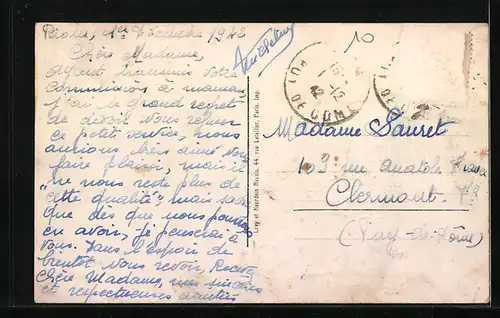 Riom, 1er Décembre 1942
Chère Madame,
Ayant transmis votre
commission à maman,
j'ai le grand regret
de devoir vous refuser
ce petit service, nous
aurions bien aimé vous
faire plaisir, mais il
ne nous reste plus de
"cette qualité", mais
dès que nous pourrons
en avoir, je penserai à
vous. Dans l'espoir de
bientôt vous revoir, Recevez
Chère Madame, mes sincères
et respectueuses amitiés
10
PUY DE DOME
Levy et Neurdein Réunis, 44, rue Letellier, Paris, Imp.
Madame Sauret
103 rue Anatole France
Clermont-Fd
(Puy-de-Dôme)